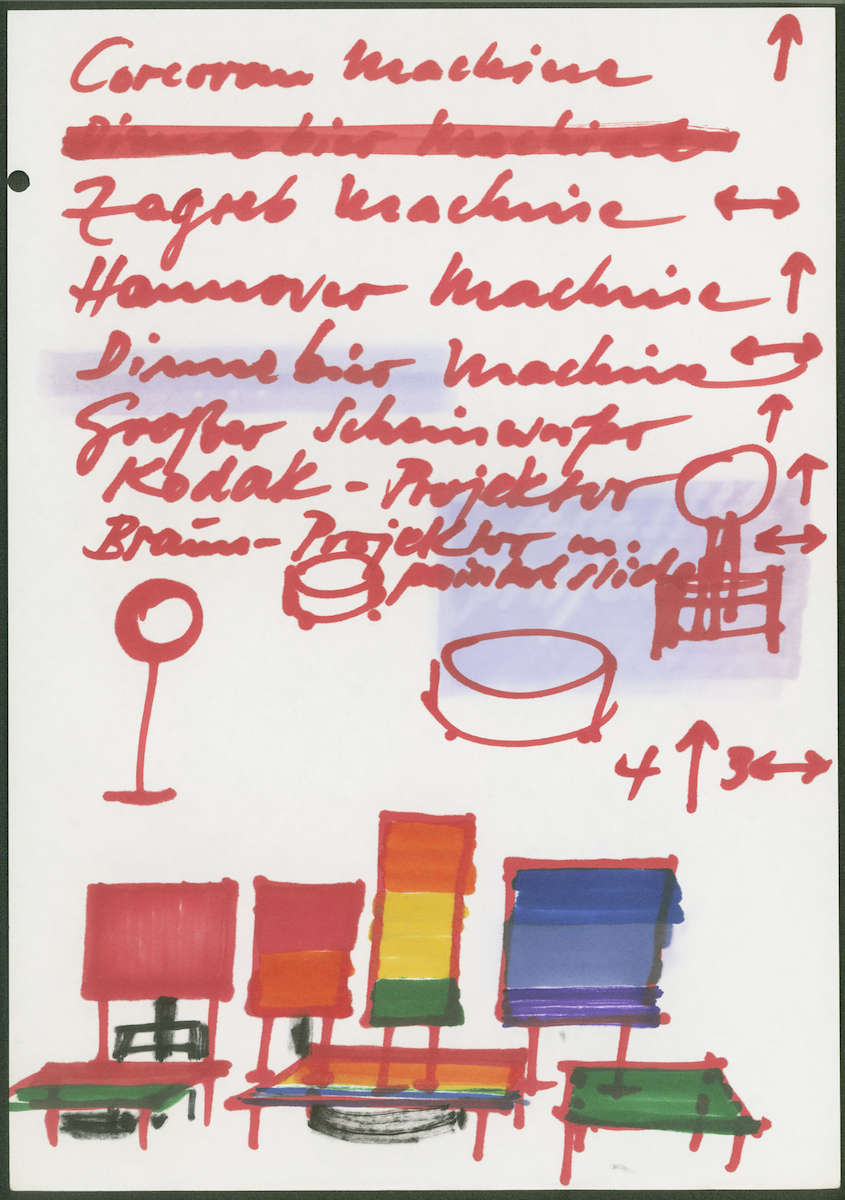 Corcoran Machine ↑
Dinnebier Machine
Zagreb Machine ↔
Hannover Machine ↑
Dinnebier Machine ↔
Großer Scheinwerfer ↑
Kodak - Projektor ↑
Braun - Projektor m. ↔
painted slides
4 ↑ 3 ↔